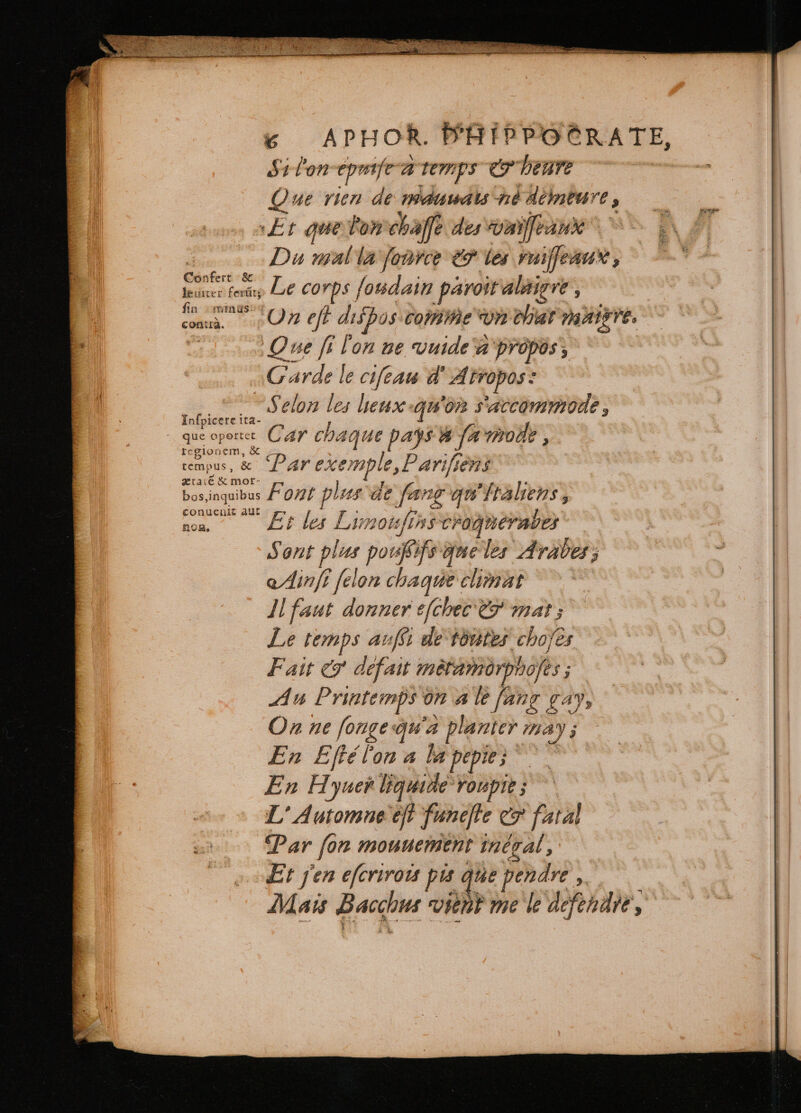 6 APHOR. D'HIPPOCRATE,
Si l'on épuise à temps & heure
Que rien de mauuais ne demeure,
Et que l'on chasse des vaisseaux
Du mal la source & les ruisseaux,
Confert &
leuiter ferũt;
sin minus
contrà.
Le corps soudain paroit alaigre,
On est dispos comme vn chat maigre.
Que si l'on ne vuide à propos,
Garde le ciseau d'Atropos:
Inspicere ita-
que oportet
regionem, &
tempus, &
ætatē & mor-
bos, inquibus
conuenit aut
non.
Selon les lieux qu'on s'accommode,
Car chaque pays a sa mode,
Par exemple, Parisiens
Font plus de sang qu'Italiens,
Et les Limousins croquerabes
Sont plus poussifs que les Arabes;
Ainsi selon chaque climat
Il faut donner eschec & mat;
Le temps aussi de toutes choses
Fait & défait métamorphoses;
Au Printemps on a le sang gay,
On ne songe qu'à planter may;
En Esté l'on a la pepie;
En Hyuer liquide roupie;
L'Automne est funeste & fatal
Par son mouuement inégal,
Et j'en escrirois pis que pendre,
Mais Bacchus vient me le defendre,